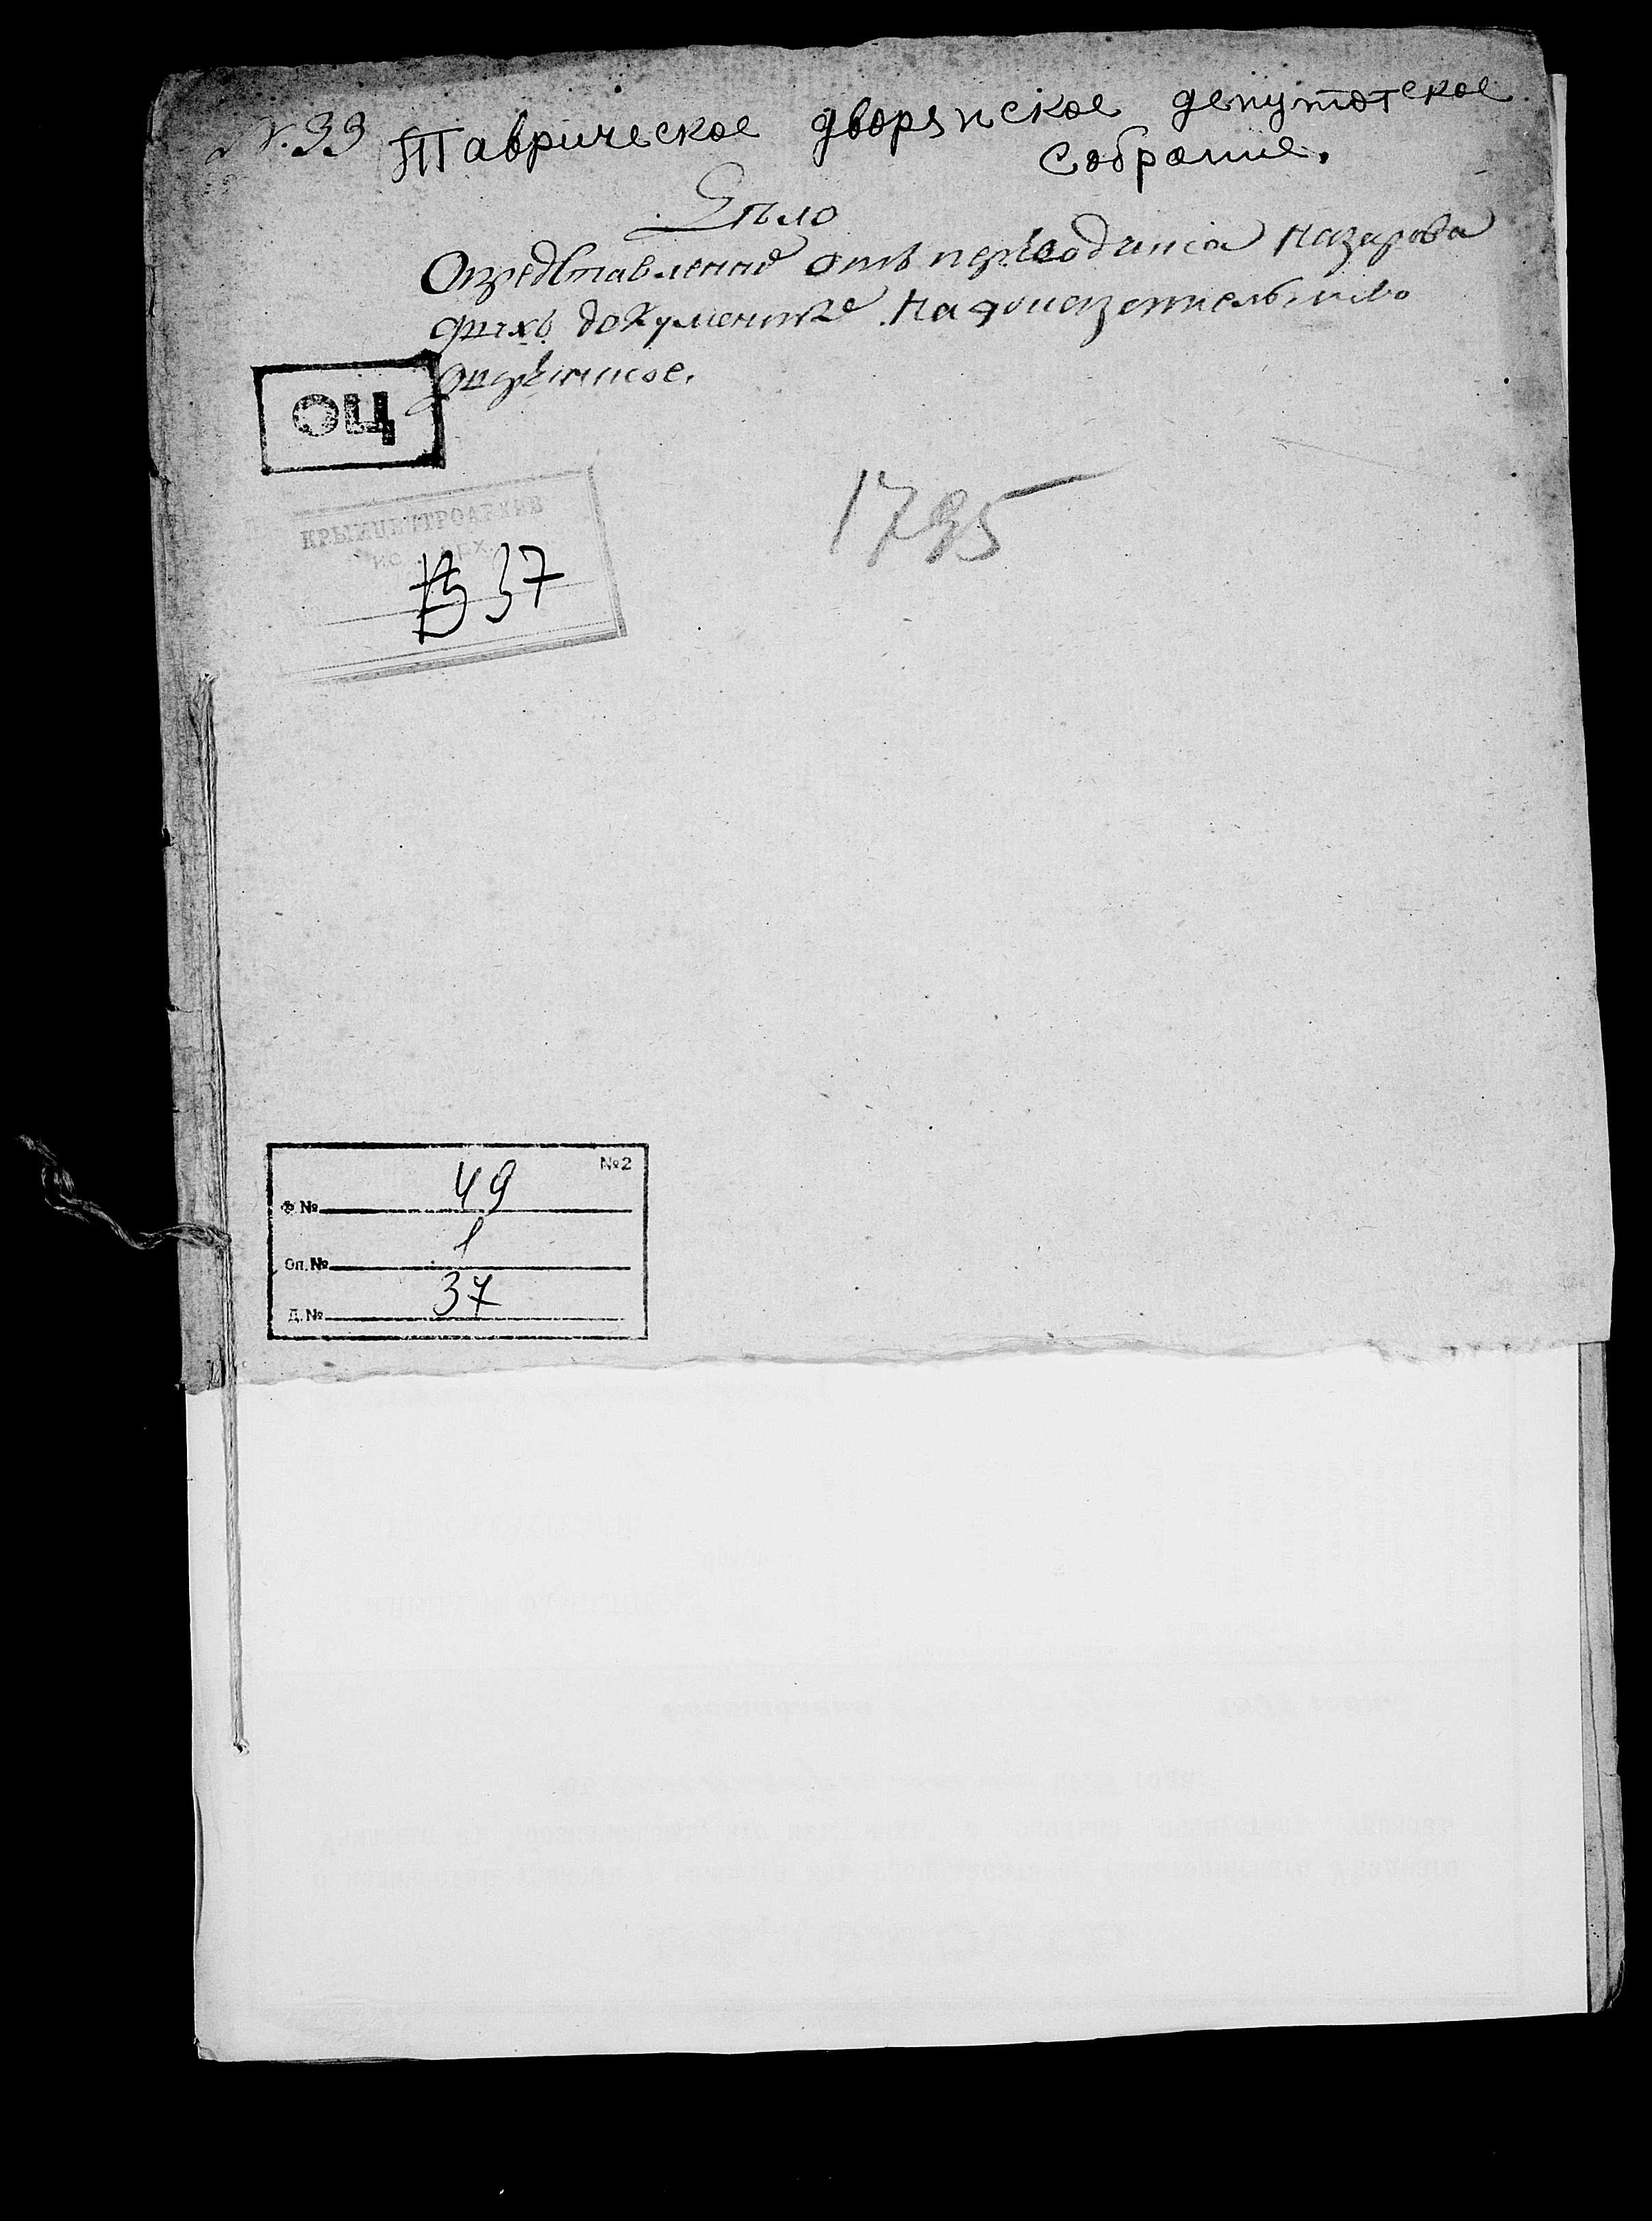 N. 33 Таврическое дворянское депутатское
Собрание.
Дѣло
О представление отъ переводчика Назарова
документе на доказательство
ОЦ
КРЫМЦЕНТРОАРХИВ
1795
37
№2
Ф. № 49
Оп. № 1
Д. № 37